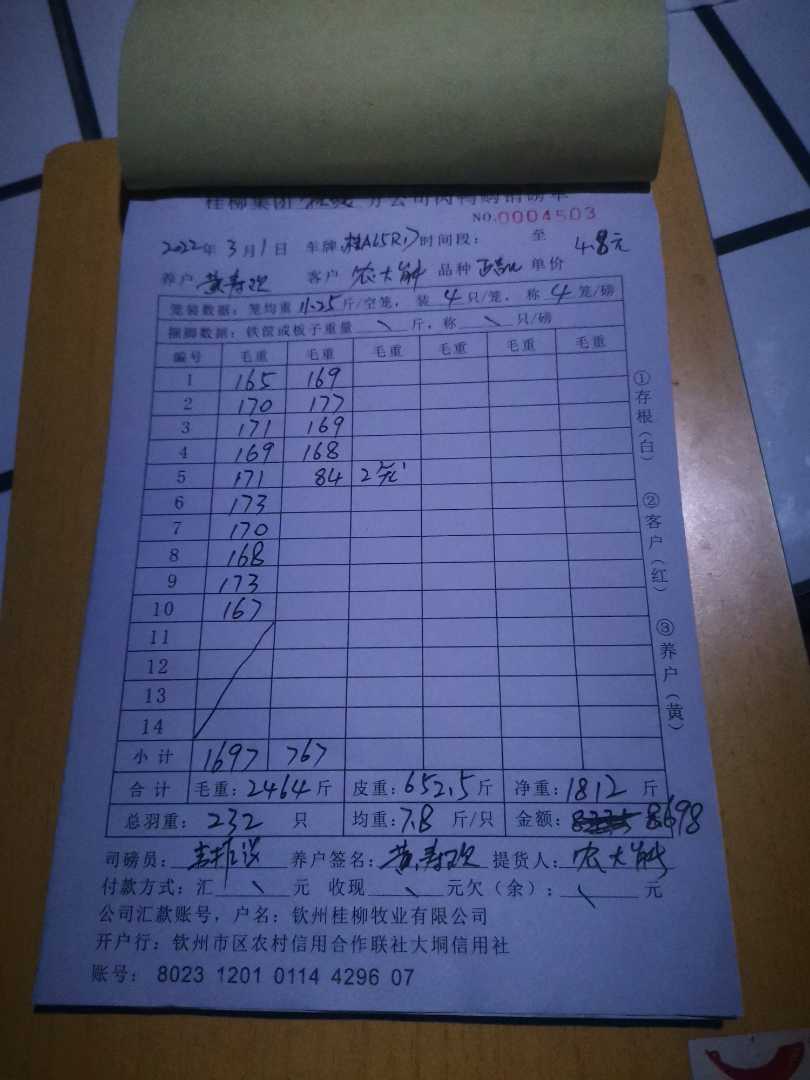 桂柳集团 分公司肉鸭购销磅单
NO.0004503
2022年 3月1日 车牌 桂A65R17 时间段： 至 4.8元
养户 黄寿欢 客户 农大 品种 单价
笼装数据：笼均重 11.25 斤/空笼，装 4 只/笼，称 4 笼/磅
捆脚数据：铁筐或板子重量 \ 斤，称 \ 只/磅
编号 毛重 毛重 毛重 毛重 毛重 毛重
1 165 169
2 170 177
3 171 169
4 169 168
5 171 84 2笼
6 173
7 170
8 168
9 173
10 167
11
12
13
14
小计 1697 767
合计 毛重：2464斤 皮重：652.5斤 净重：1812斤
总羽重：232只 均重：7.8斤/只 金额：8698
司磅员： 养户签名：黄寿欢 提货人：农大
付款方式：汇 \ 元 收现 \ 元欠（余）： \ 元
公司汇款账号，户名：钦州桂柳牧业有限公司
开户行：钦州市区农村信用合作联社大垌信用社
账号：8023 1201 0114 4296 07
①存根（白） ②客户（红） ③养户（黄）